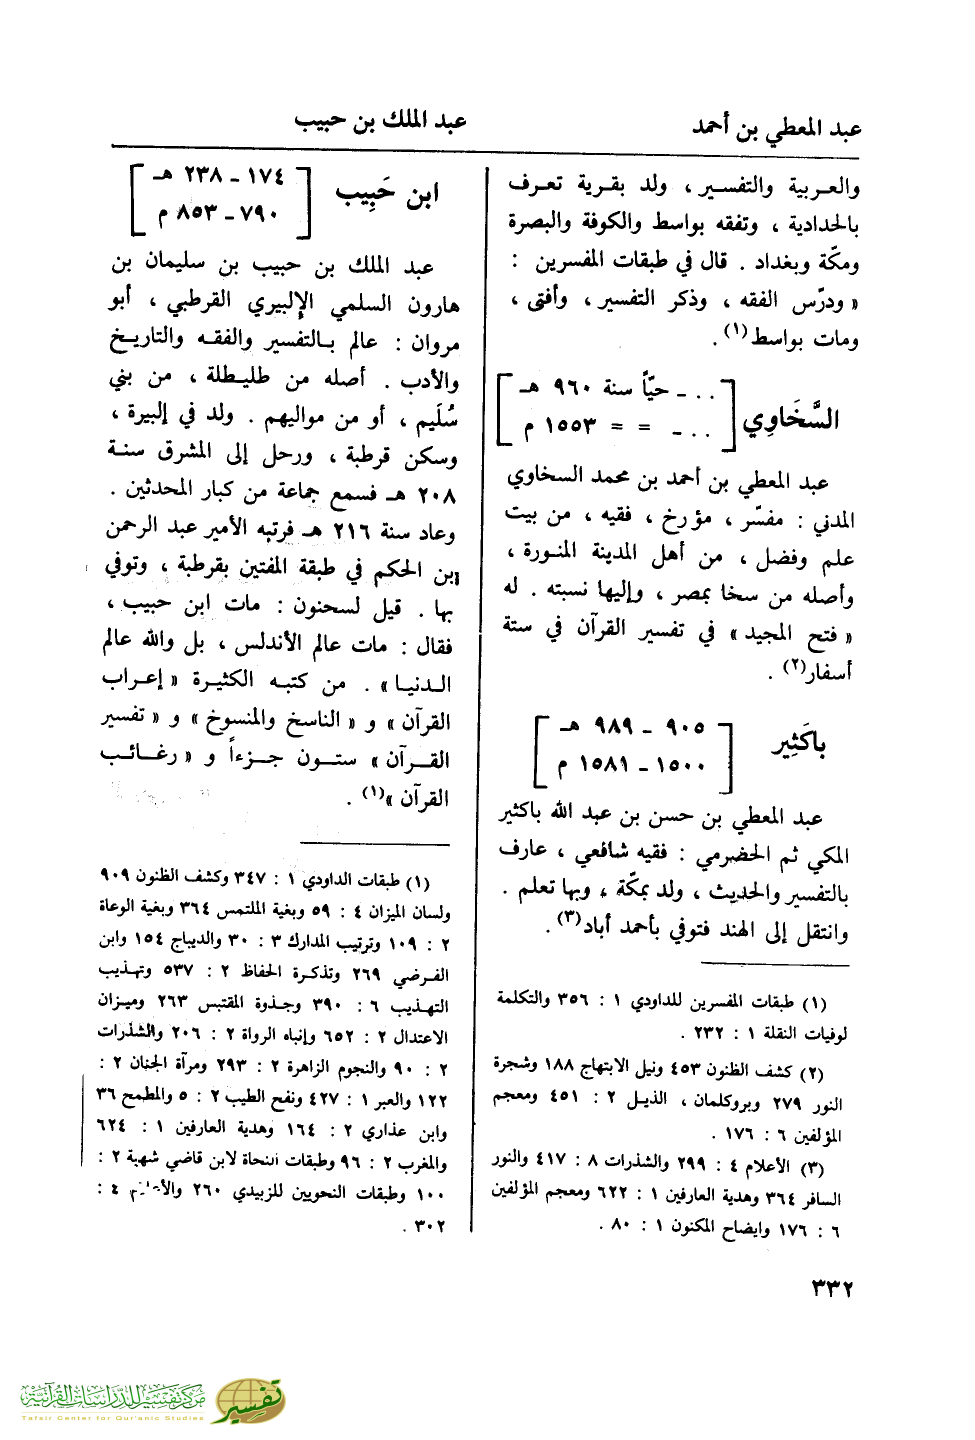 عبد المعطي بن أحمد
عبد الملك بن حبيب
والعربية والتفسير ، ولد بقرية تعرف
بالحدادية ، وتفقه بواسط والكوفة والبصرة
ومكّة وبغداد . قال في طبقات المفسرين :
« ودرّس الفقه ، وذكر التفسير ، وأفتى ،
ومات بواسط(١) .
السَّخَاوِي
[ . . ـ حيّاً سنة ٩٦٠ هـ
. . ـ = = ١٥٥٣ م ]
عبد المعطي بن أحمد بن محمد السخاوي
المدني : مفسّر ، مؤرخ ، فقيه ، من بيت
علم وفضل ، من أهل المدينة المنورة ،
وأصله من سخا بمصر ، وإليها نسبته . له
« فتح المجيد » في تفسير القرآن في ستة
أسفار(٢) .
باكَثِير
[ ٩٠٥ ـ ٩٨٩ هـ
١٥٠٠ ـ ١٥٨١ م ]
عبد المعطي بن حسن بن عبد الله باكثير
المكي ثم الحضرمي : فقيه شافعي ، عارف
بالتفسير والحديث ، ولد بمكّة ، وبها تعلم .
وانتقل إلى الهند فتوفي بأحمد أباد(٣) .
(١) طبقات المفسرين للداودي ١ : ٣٥٦ والتكلمة
لوفيات النقلة ١ : ٢٣٢ .
(٢) كشف الظنون ٤٥٣ ونيل الابتهاج ١٨٨ وشجرة
النور ٢٧٩ وبروكلمان ، الذيل ٢ : ٤٥١ ومعجم
المؤلفين ٦ : ١٧٦ .
(٣) الأعلام ٤ : ٢٩٩ والشذرات ٨ : ٤١٧ والنور
السافر ٣٦٤ وهدية العارفين ١ : ٦٢٢ ومعجم المؤلفين
٦ : ١٧٦ وايضاح المكنون ١ : ٨٠ .
ابن حَبِيب
[ ١٧٤ ـ ٢٣٨ هـ
٧٩٠ ـ ٨٥٣ م ]
عبد الملك بن حبيب بن سليمان بن
هارون السلمي الإلبيري القرطبي ، أبو
مروان : عالم بالتفسير والفقه والتاريخ
والأدب . أصله من طليطلة ، من بني
سُلَيم ، أو من مواليهم . ولد في إلبيرة ،
وسكن قرطبة ، ورحل إلى المشرق سنة
٢٠٨ هـ فسمع جماعة من كبار المحدثين .
وعاد سنة ٢١٦ هـ فرتبه الأمير عبد الرحمن
ابن الحكم في طبقة المفتين بقرطبة ، وتوفي
بها . قيل لسحنون : مات ابن حبيب ،
فقال : مات عالم الأندلس ، بل والله عالم
الدنيا » . من كتبه الكثيرة « إعراب
القرآن » و « الناسخ والمنسوخ » و « تفسير
القرآن » ستون جزءاً و « رغائب
القرآن »(١) .
(١) طبقات الداودي ١ : ٣٤٧ وكشف الظنون ٩٠٩
ولسان الميزان ٤ : ٥٩ وبغية الملتمس ٣٦٤ وبغية الوعاة
٢ : ١٠٩ وترتيب المدارك ٣ : ٣٠ والديباج ١٥٤ وابن
الفرضي ٢٦٩ وتذكرة الحفاظ ٢ : ٥٣٧ وتهذيب
التهذيب ٦ : ٣٩٠ وجذوة المقتبس ٢٦٣ وميزان
الاعتدال ٢ : ٦٥٢ وإنباه الرواة ٢ : ٢٠٦ والشذرات
٢ : ٩٠ والنجوم الزاهرة ٢ : ٢٩٣ ومرآة الجنان ٢ :
١٢٢ والعبر ١ : ٤٢٧ ونفح الطيب ٢ : ٥ والمطمح ٣٦
وابن عذاري ٢ : ١٦٤ وهدية العارفين ١ : ٦٢٤
والمغرب ٢ : ٩٦ وطبقات النحاة لابن قاضي شهبة ٢ :
١٠٠ وطبقات النحويين للزبيدي ٢٦٠ والأعلام ٤ :
٣٠٢ .
٣٣٢
مركز تفسير للدراسات القرآنية
Tafsir Center for Qur'anic Studies
تفسير